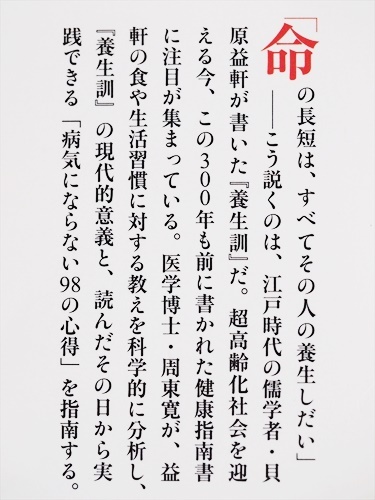 「命の長短は、すべてその人の養生しだい」
――こう説くのは、江戸時代の儒学者・貝
原益軒が書いた『養生訓』だ。超高齢化社会を迎
える今、この300年も前に書かれた健康指南書
に注目が集まっている。医学博士・周東寛が、益
軒の食や生活習慣に対する教えを科学的に分析し、
『養生訓』の現代的意義と、読んだその日から実
践できる「病気にならない98の心得」を指南する。